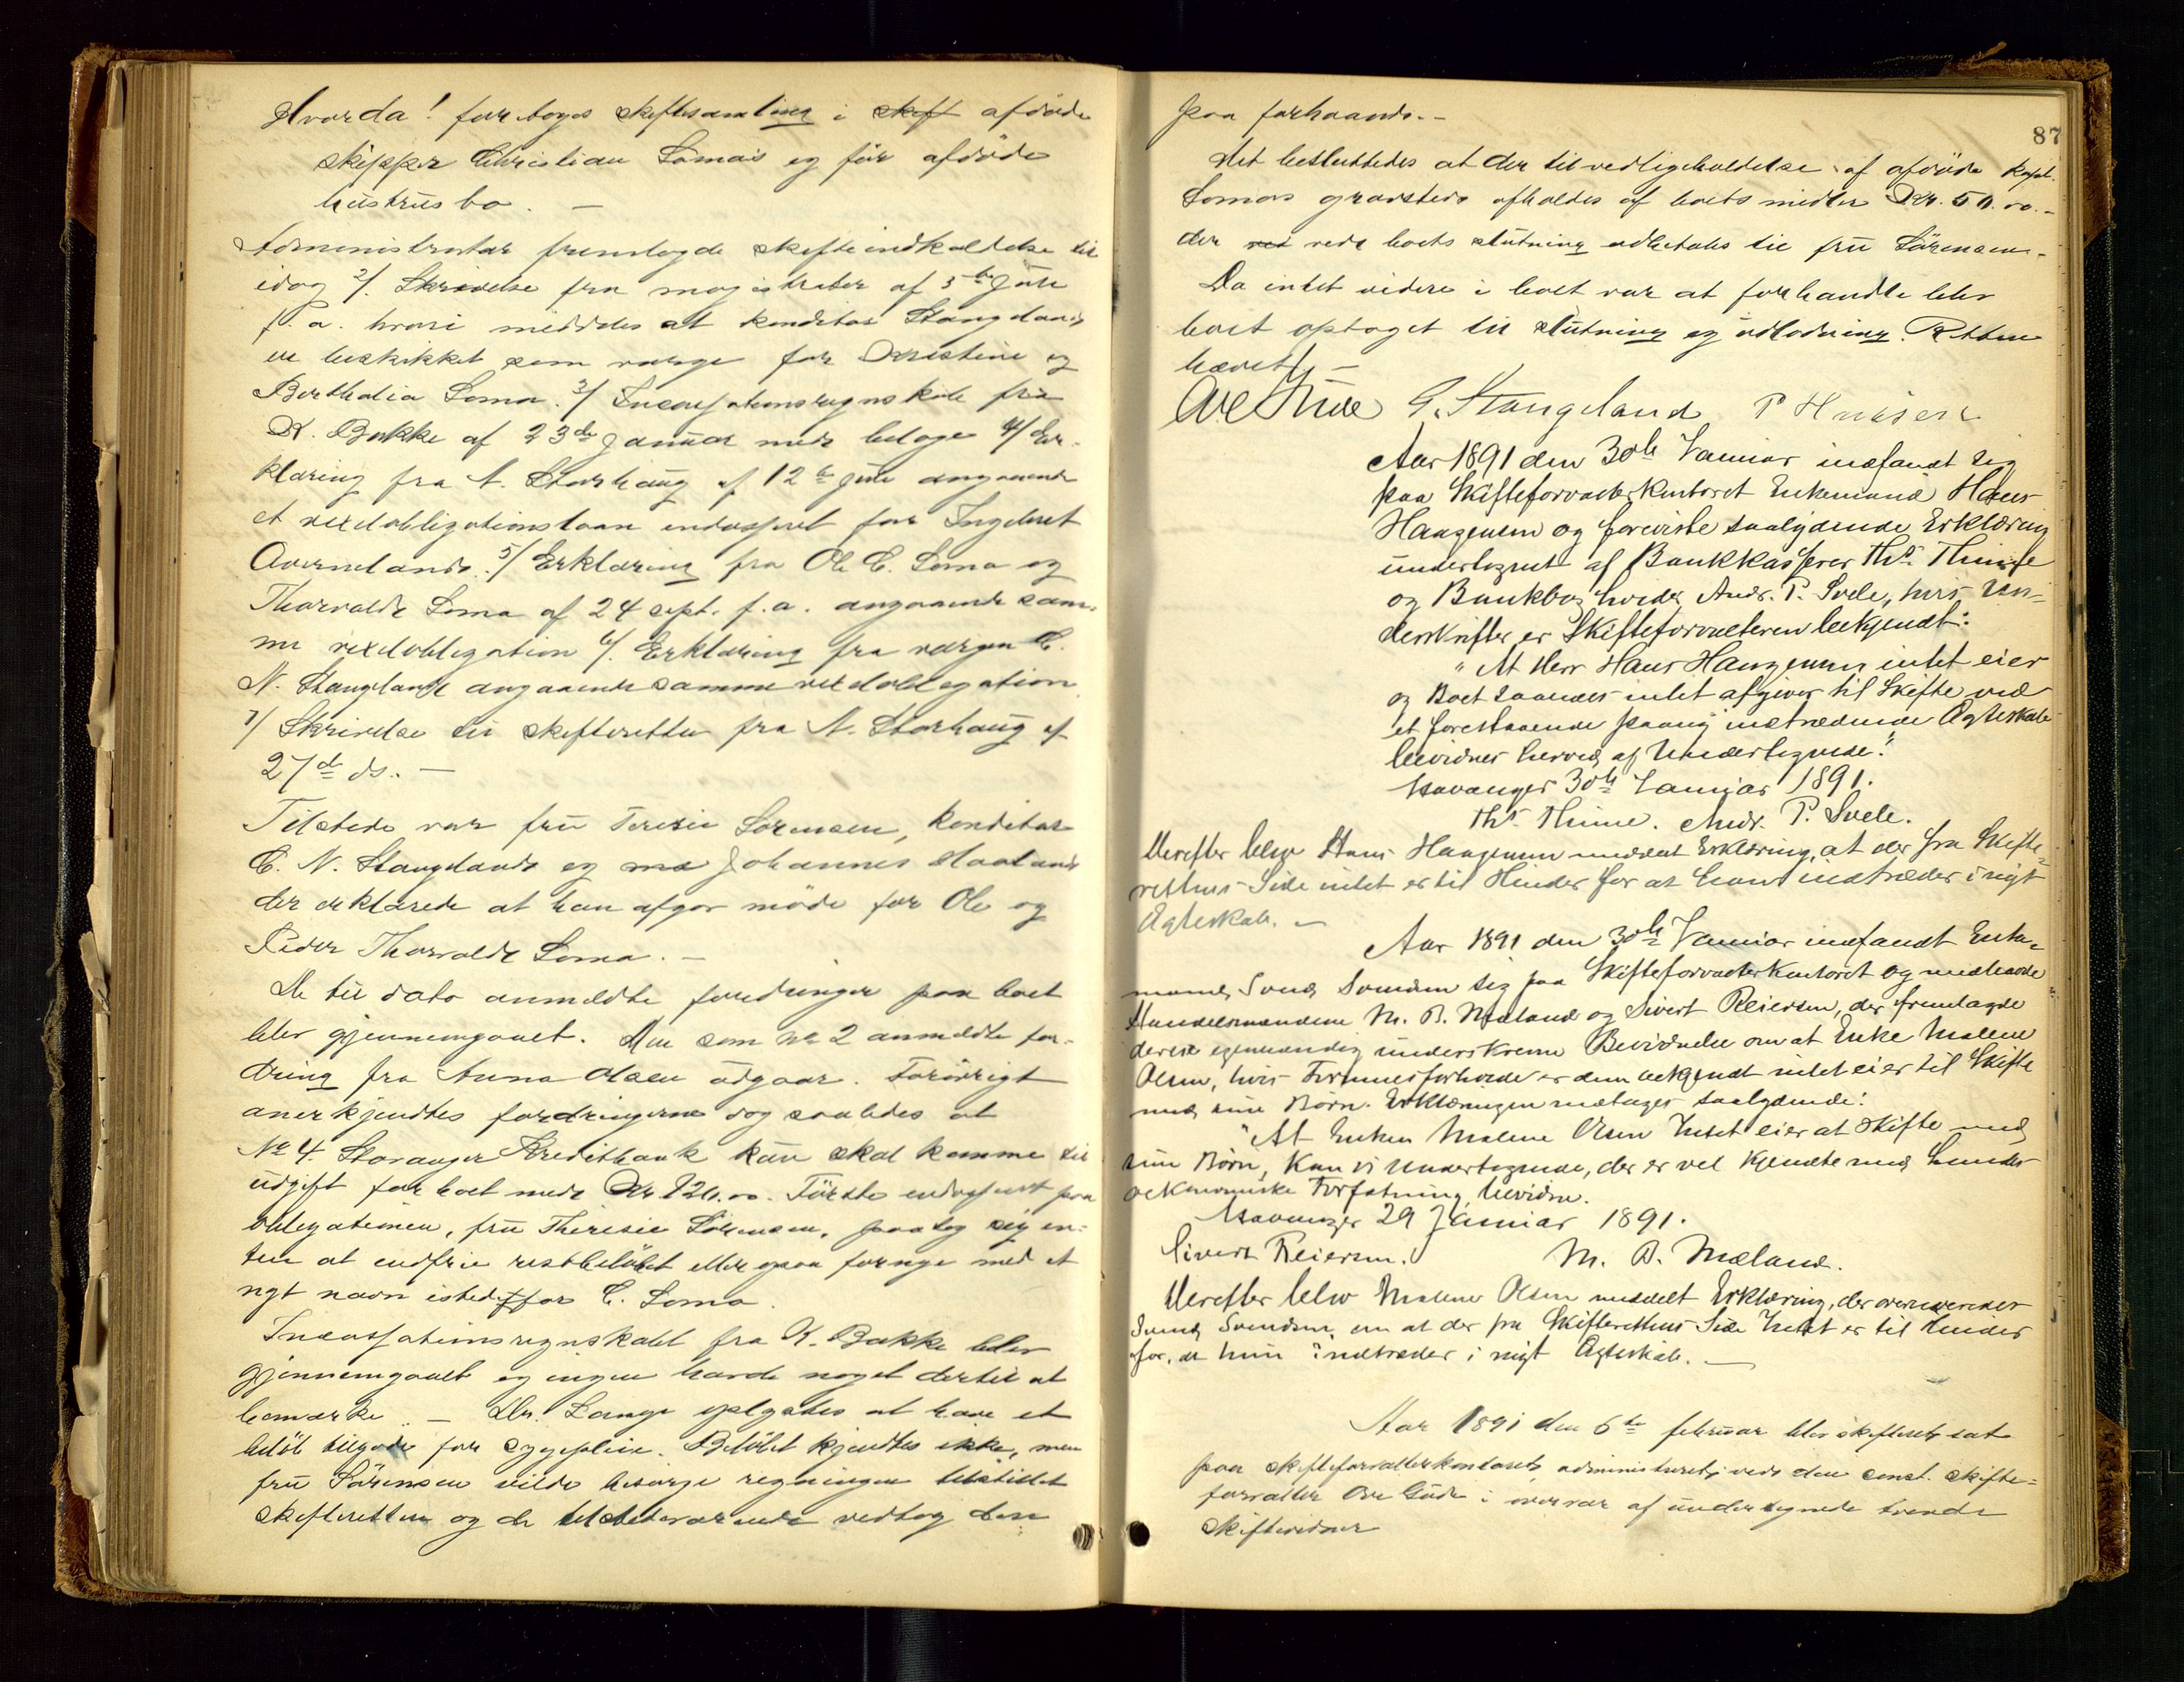 Hvorda! foretoges skiftesamling i skift afdøde
skipper Christian Lomas og før afdøde
hustrus bo. —
Administrator fremlagde skifteindkaldelse til
idag 2/. Skrivelse fra magistraten af 5te Juli
f. a. hvori meddeles at konditor Stangeland
er beskikket som værge for Kristine og
Berthalia Loma. 3/ Incassationsregnskab fra
K. Bakke af 23de Januar med bilage 4/ Er-
klæring fra A. Storhaug af 12te Juli angaaende
et vexelobligationslaan endosseret for Ingebret
Avernelands. 5/ Erklæring fra Ole C. Loma og
Thorvald Loma af 24 sept. f. a. angaaende sam-
me vexelobligation 6/. Erklæring fra værgen C.
N. Stangeland angaaende samme vexelobligation
7/ Skrivelse til skifteretten fra A. Storhaug af
27de ds. —
Tilstede var fru Teresie Sørensen, konditor
C. N. Stangeland og Johannes Haaland
der erklærede at han afgav møde for Ole og
Peder Thorvald Loma. —
De til dato anmeldte fordringer paa boet
blev gjennemgaaet. Den som No 2 anmeldte for-
dring fra Anna Olsen udgaar. Forøvrigt
anerkjendtes fordringerne dog saaledes at
No 4. Stavanger Kreditbank kun skal komme til
udgift for boet med Kr. 120.00. Første endossent paa
obligationen, fru Theresie Sørensen, paatog sig en-
ten at indfrie restbeløbet eller ogsaa fornye med et
nyt navn istedetfor C. Loma.
Incassationsregnskabet fra K. Bakke blev
gjennemgaaet og ingen havde noget dertil at
bemærke. — Dr. Lange oplystes at have et
beløb tilgode for sygepleie. Beløbet kjendtes ikke, men
fru Sörensen vilde besørge regningen tilstillet
skifteretten og de tilstedeværende vedtog den
87
paa forhaand. —
Det besluttedes at der til vedligeholdelse af afdøde kapt.
Lomas gravsted afholdes af boets midler Kr. 50.00. —
der ved ved boets slutning udbetales til fru Sörensen. —
Da intet videre i boet var at forhandle blev
boet optaget til slutning og udlodning. Retten
hævet. —
Ove Gude G. Stangeland P Hansen
Aar 1891 den 30te Januar indfandt sig
paa Skifteforvalterkontoret Enkemand Hans
Haagensen og foreviste saalydende Erklæring
undertegnet af Bankkasserer Ths. Thime
og Bankbogholder Andr. P. Svele, hvis Un-
derskrifter er Skifteforvalteren bekjendt:
"At Herr Hans Haagensen intet eier
og Boet saaledes intet afgiver til Skifte ved
et forestaaende paany indtrædende Ægteskab
bevidnes herved af Undertegnede."
Stavanger 30te Januar 1891.
Ths. Thime. Andr. P. Svele.
Derefter blev Hans Haagensen meddelt Erklæring, at der fra Skifte-
rettens Side intet er til Hinder for at han indtræder i nyt
Ægteskab. —
Aar 1891 den 30te Januar indfandt Enke-
mand Svend Svendsen sig paa Skifteforvalterkontoret og medhavde
Handelsmændene M. B. Mæland og Sivert Reiersen, der fremlagde
deres egenhændig underskrevne Bevidnelse om at Enke Malene
Olsen, hvis Formuesforholde er dem bekjendt intet eier til Skifte
med sine Børn. Erklæringen modtages saalydende:
"At Enken Malene Olsen Intet eier at skifte med
sine Børn, kan vi undertegnede, der er vel kjendte med hendes
oekonomiske Forfatning, bevidne.
Stavanger 29 Januar 1891.
Sivert Reiersen. M. B. Mæland.
Derefter blev Malene Olsen meddelt Erklæring, der
Svend Svendsen, om at der fra Skifterettens Side Intet er til Hinder
for, at hun indtræder i nyt Ægteskab. —
Aar 1891 den 6te februar blev skifteret sat
paa skifteforvalterkontoret, administreret ved den const. skifte-
forvalter Ove Gude i overvær af undertegnede tvende
skiftevidner